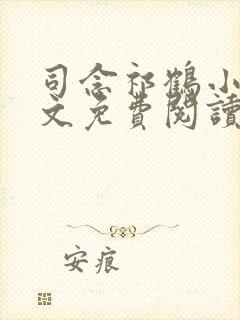 司念祁鶴小
文免費閱讀
安痕